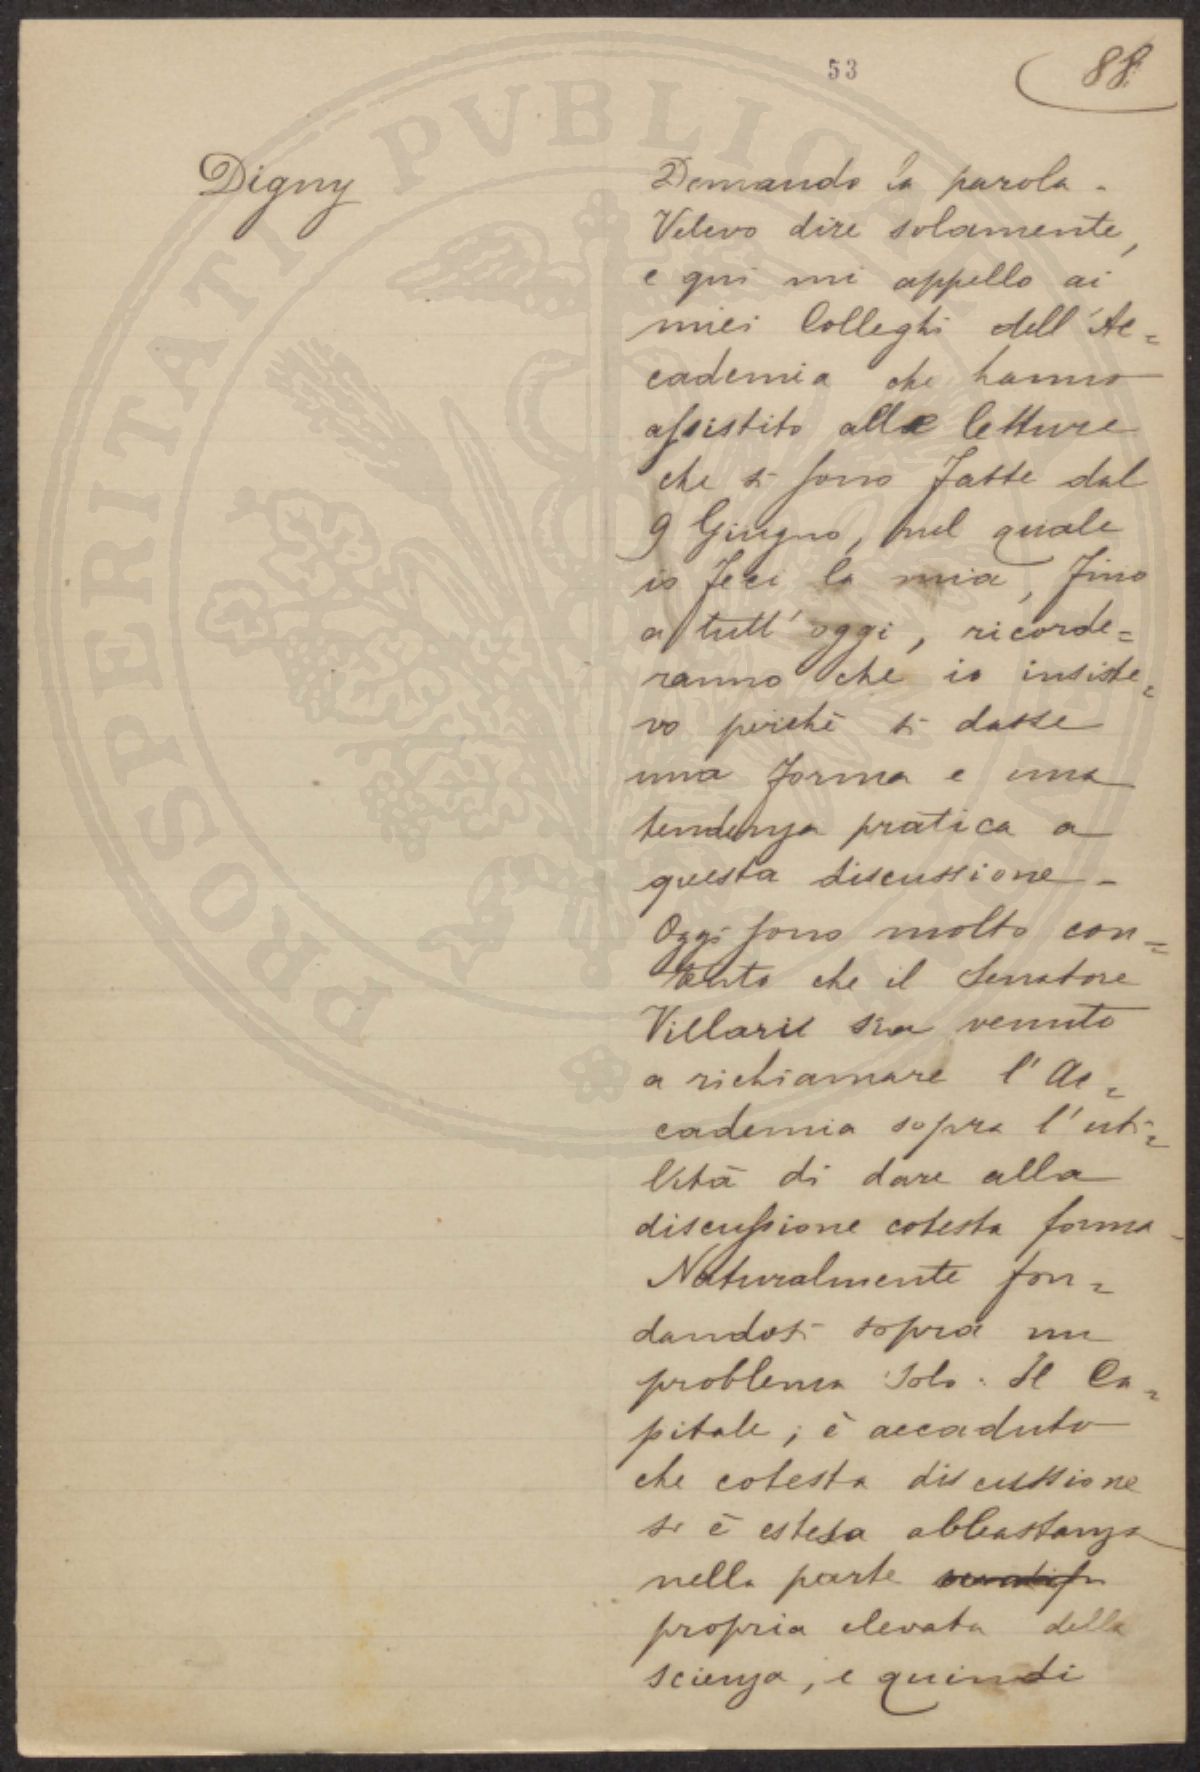 53
88
Digny
Demando la parola -
Volevo dire solamente,
e qui mi appello ai
miei Colleghi dell'Ac=
cademia che hanno
assistito alle letture
che si sono fatte dal
9 Giugno, nel quale
io feci la mia, fino
a tutt'oggi, ricorde=
ranno che io insiste=
vo perchè si dasse
una forma e una
tendenza pratica a
questa discussione -
Oggi sono molto con=
tento che il Senatore
Villari sia venuto
a richiamare l'Ac=
cademia sopra l'uti=
lità di dare alla
discussione cotesta forma -
Naturalmente fon=
dandosi sopra un
problema solo: Il Ca=
pitale, è accaduto
che cotesta discussione
si è estesa abbastanza
nella parte
propria elevata della
scienza, e quindi
PROSPERITATI PVBLICAE